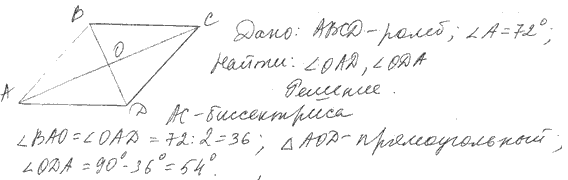 B
C
O
A
D
Дано: ABCD-ромб; ∠A=72°;
Найти: ∠OAD, ∠ODA
Решение.
AC-биссектриса
∠BAO=∠OAD=72:2=36; △AOD-прямоугольный;
∠ODA=90°-36°=54°.